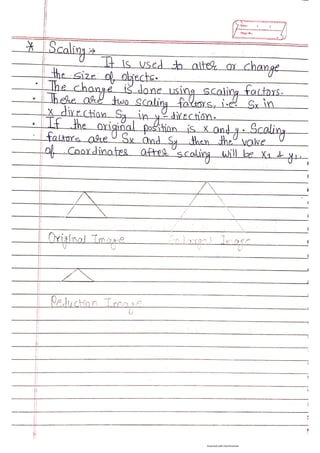 * Scaling →
It is used to alter or change
the size of objects.
• The change is done using scaling factors.
• There are two scaling factors, i.e Sx in
x direction Sy in y-direction.
• If the original position is x and y. Scaling
factors are Sx and Sy then the value
of coordinates after scaling will be x1 & y1.
Original Image
Enlarged Image
Reduction Image